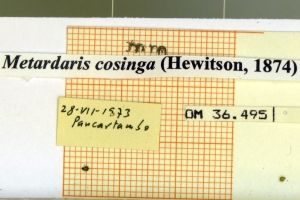 mm
Metardaris cosinga (Hewitson, 1874)
28-VII-1973
Paucartambo
OM 36.495